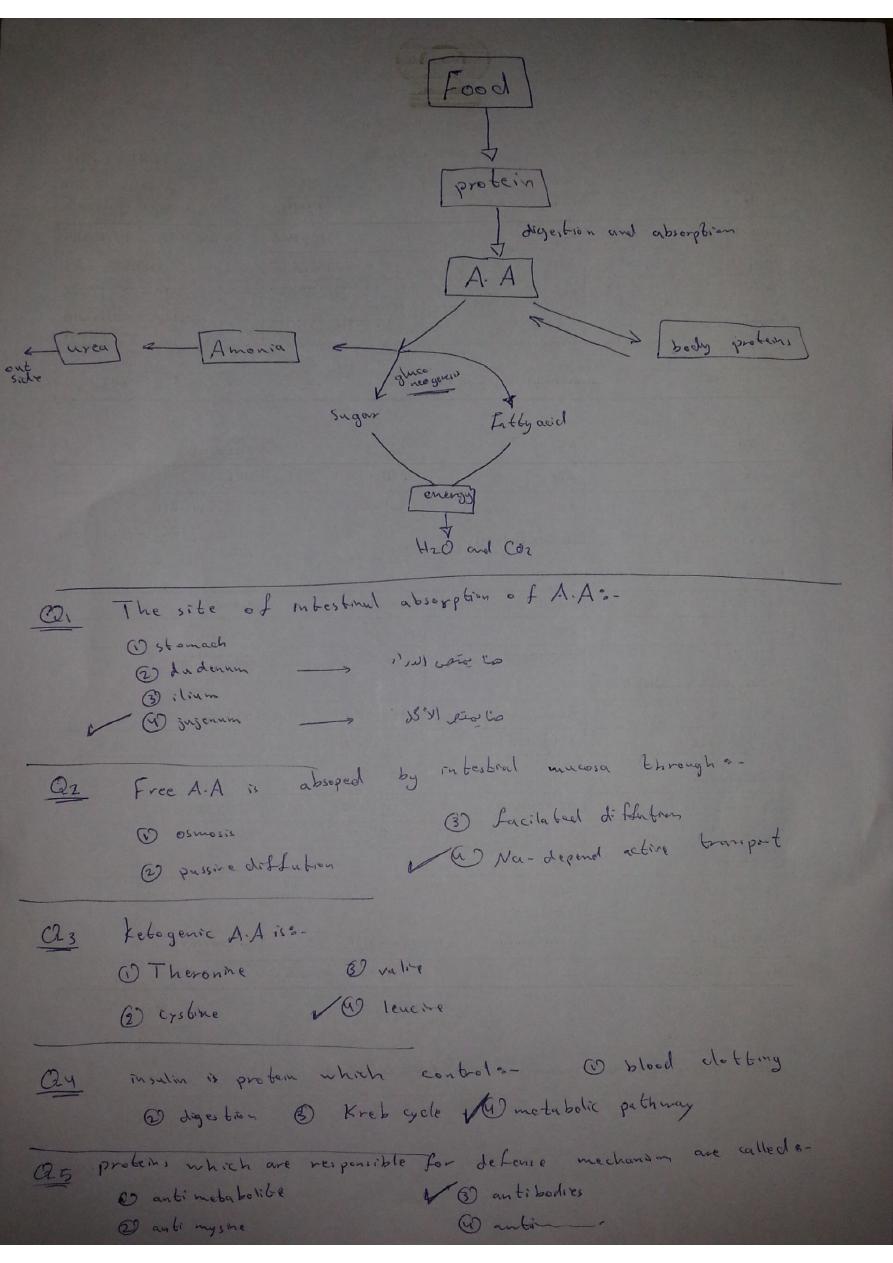 Food
protein
digestion and absorption
A.A
urea
Amonia
body proteins
out side
gluco neogenesis
Sugar
Fatty acid
energy
H2O and CO2
Q1 The site of intestinal absorption of A.A:-
① stomach
② dudenum → هنا يمتص
③ ilium
④ jujenum → هنا يمتص
Q2 Free A.A is absoped by intestinal mucosa through:-
① osmosis ③ facilated diffution
② passive diffution ④ Na-depend active transport
Q3 Ketogenic A.A is:-
① Theronine ③ valine
② cystine ④ leucine
Q4 insulin is protein which controls:- ① blood clotting
② digestion ③ Kreb cycle ④ metabolic pathway
Q5 proteins which are responsible for defense mechanism are called:-
① anti metabolite ③ antibodies
② anti mysine ④ anti